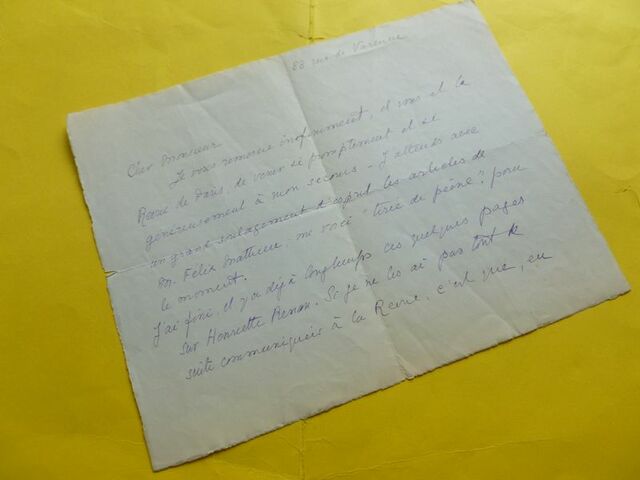 88 rue de Varenne
Cher Monsieur
Je vous remercie infiniment, et vous et la
Revue de Paris, de venir si promptement et si
généreusement à mon secours - J'attends avec
un grand soulagement d'esprit les articles de
M. Félix Mathieu: me voici "tirée de peine", pour
le moment.
J'ai fini, il y a déjà longtemps ces quelques pages
sur Henriette Renan. Si je ne les ai pas tout de
suite communiquées à la Revue, c'est que, en